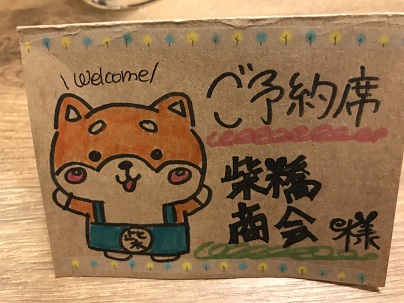 \welcome/
ご予約席
柴橋
商会 様
柴